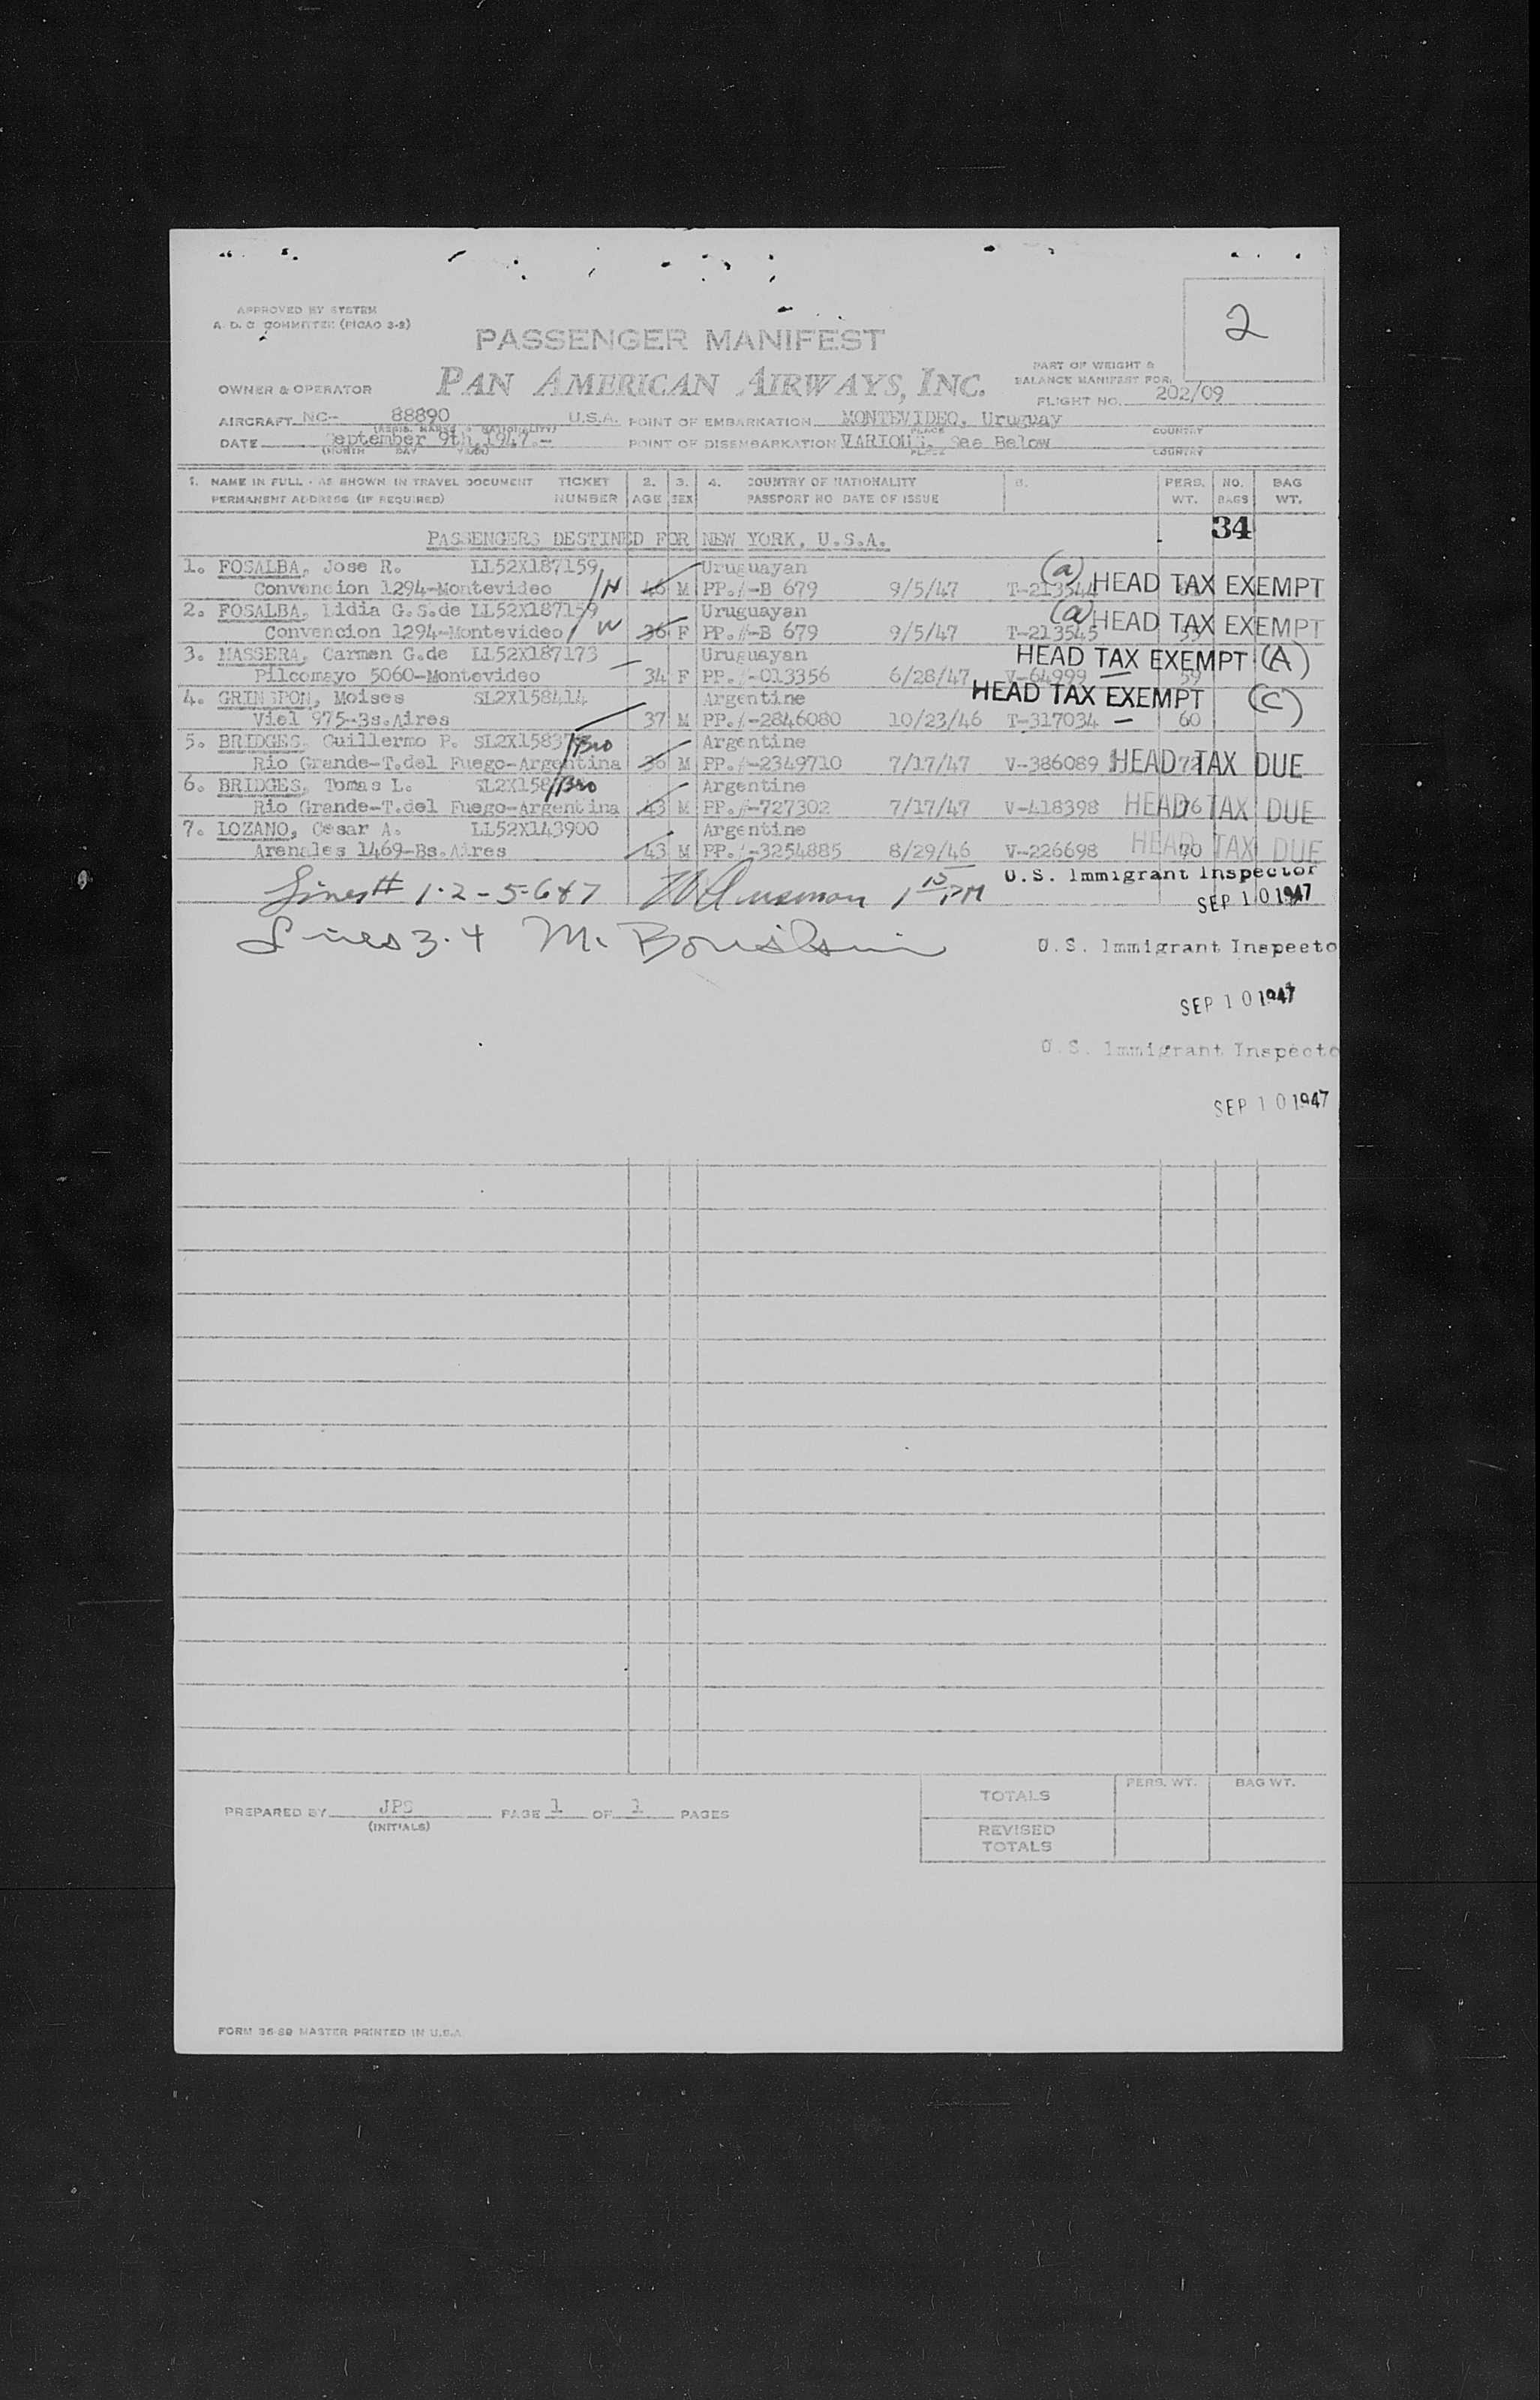 APPROVED BY SYSTEM
A. D. C COMMITTEE (PICAO 3-2)
2
PASSENGER MANIFEST
PART OF WEIGHT &
BALANCE MANIFEST FOR
OWNER & OPERATOR PAN AMERICAN AIRWAYS, INC. FLIGHT NO. 202/09
AIRCRAFT NC- 88890 U.S.A. POINT OF EMBARKATION MONTEVIDEO, Uruguay
(REGIS. MARKS & NATIONALITY) PLACE COUNTRY
DATE September 9th, 1947.- POINT OF DISEMBARKATION VARIOUS, See Below
(MONTH DAY YEAR) PLACE COUNTRY
1. NAME IN FULL - AS SHOWN IN TRAVEL DOCUMENT TICKET 2. 3. 4. COUNTRY OF NATIONALITY PERS. NO. BAG
PERMANENT ADDRESS (IF REQUIRED) NUMBER AGE SEX PASSPORT NO DATE OF ISSUE WT. BAGS WT.
34
PASSENGERS DESTINED FOR NEW YORK, U.S.A.
1. FOSALBA, Jose R. LL52X187159 Uruguayan (a) HEAD TAX EXEMPT
Convencion 1294-Montevideo 46 M PP.#-B 679 9/5/47 T-213544
2. FOSALBA, Lidia G.S.de LL52X187159 Uruguayan (a) HEAD TAX EXEMPT
Convencion 1294-Montevideo 36 F PP.#-B 679 9/5/47 T-213545 55
3. MASSERA, Carmen G.de LL52X187173 Uruguayan HEAD TAX EXEMPT (A)
Pilcomayo 5060-Montevideo 34 F PP.#-013356 6/28/47 V-64999 59
4. GRINSPON, Moises SL2X158414 Argentine HEAD TAX EXEMPT (C)
Viel 975-Bs.Aires 37 M PP.#-2846080 10/23/46 T-317034 60
5. BRIDGES, Guillermo P. SL2X1583 Argentine
Rio Grande-T.del Fuego-Argentina 36 M PP.#-2349710 7/17/47 V-386089 72 HEAD TAX DUE
6. BRIDGES, Tomas L. SL2X158 Argentine
Rio Grande-T.del Fuego-Argentina 43 M PP.#-727302 7/17/47 V-418398 76 HEAD TAX DUE
7. LOZANO, Cesar A. LL52X143900 Argentine
Arenales 1469-Bs.Aires 43 M PP.#-3254885 8/29/46 V-226698 70 HEAD TAX DUE
U.S. Immigrant Inspector
Lines # 1-2-5-6&7 1 15 PM SEP 10 1947
Lines 3-4 M. U.S. Immigrant Inspecto
SEP 10 1947
U.S. Immigrant Inspecto
SEP 10 1947
TOTALS PERS. WT. BAG WT.
PREPARED BY JPS PAGE 1 OF 1 PAGES
(INITIALS)
REVISED
TOTALS
FORM 36-89 MASTER PRINTED IN U.S.A